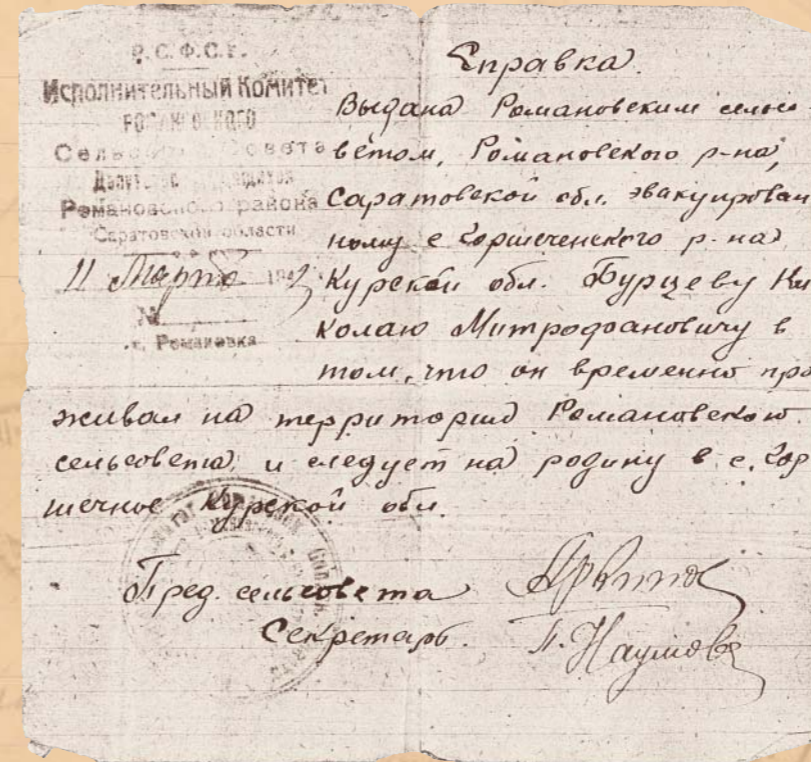 Р.С.Ф.С.Р.
Исполнительный Комитет
РОМАНОВСКОГО
Сельского Совета
Депутатов Трудящихся
Романовского района
Саратовской области
11 Марта 194
№
с. Романовка
Справка.
Выдана Романовским сельсо
ветом, Романовского р-на,
Саратовской обл. эвакуирован
ному с Горшеченского р-на
Курской обл. Бурцеву Ни
колаю Митрофановичу в
том, что он временно про
живал на территории Романовского
сельсовета и следует на родину в с. Гор
шечное Курской обл.
Пред. сельсовета
Секретарь. П. Наумова